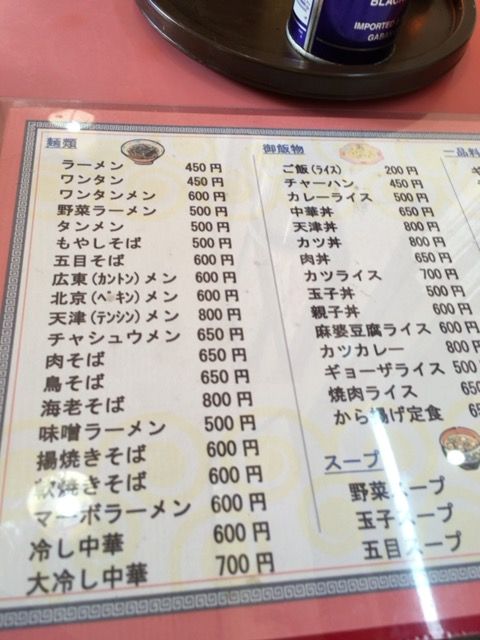 BLACK
IMPORTED
GABAN
麺類
ラーメン 450円
ワンタン 450円
ワンタンメン 600円
野菜ラーメン 500円
タンメン 500円
もやしそば 500円
五目そば 600円
広東(カントン)メン 600円
北京(ペキン)メン 600円
天津(テンシン)メン 800円
チャシュウメン 650円
肉そば 650円
鳥そば 650円
海老そば 800円
味噌ラーメン 500円
揚焼きそば 600円
焼きそば 600円
マーボラーメン 600円
冷し中華 600円
大冷し中華 700円
御飯物
ご飯(ライス) 200円
チャーハン 450円
カレーライス 500円
中華丼 650円
天津丼 800円
カツ丼 800円
肉丼 650円
カツライス 700円
玉子丼 500円
親子丼 600円
麻婆豆腐ライス 600円
カツカレー 800円
ギョーザライス 500
焼肉ライス 650
から揚げ定食
スープ
野菜スープ
玉子スープ
五目スープ
一品料